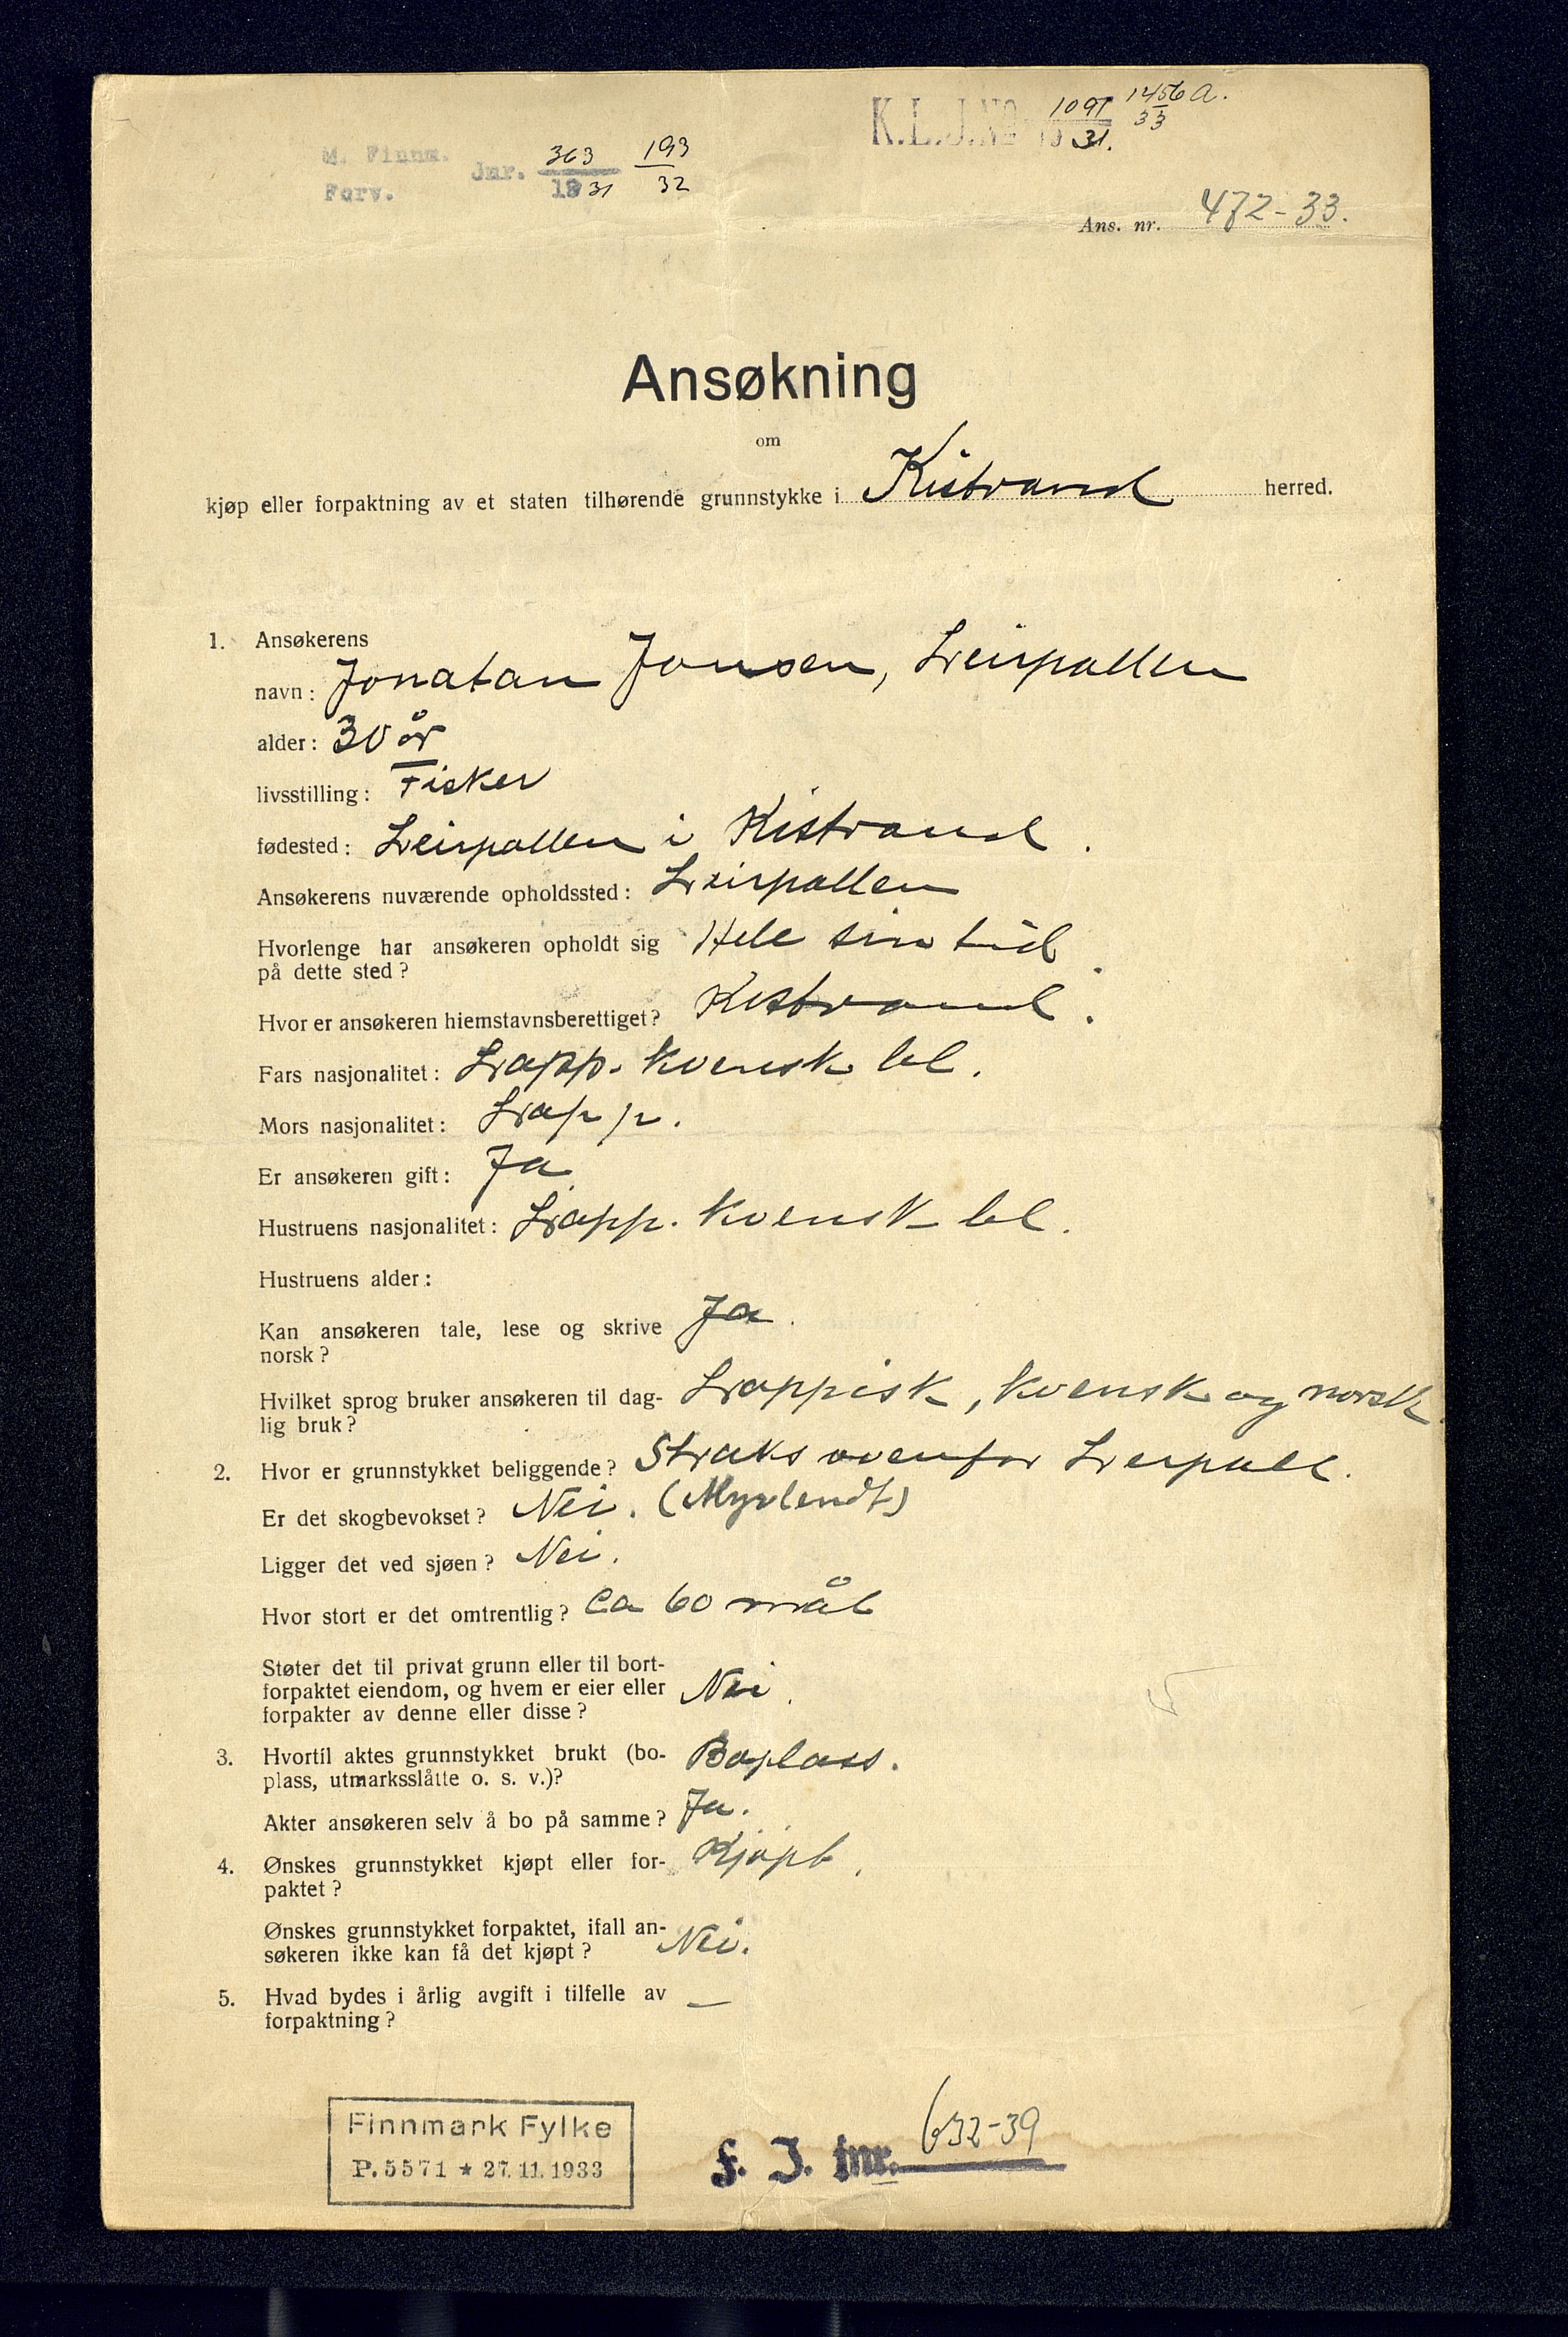 K.L.J.No 1091 1456 a.
19 31. 33
M. Finnm. Jnr. 363 193
Forv. 1931 32
Ans. nr. 472-33.
Ansøkning
om
kjøp eller forpaktning av et staten tilhørende grunnstykke i Kistrand herred.
1. Ansøkerens
navn: Jonatan Jonsen, Leirpollen
alder: 30 år
livsstilling: Fisker
fødested: Leirpollen i Kistrand.
Ansøkerens nuværende opholdssted: Leirpollen
Hvorlenge har ansøkeren opholdt sig Hele sin tid.
på dette sted?
Hvor er ansøkeren hiemstavnsberettiget? Kistrand.
Fars nasjonalitet: Lapp. kvensk bl.
Mors nasjonalitet: Lapp.
Er ansøkeren gift: Ja.
Hustruens nasjonalitet: Lapp. kvensk bl.
Hustruens alder:
Kan ansøkeren tale, lese og skrive Ja.
norsk?
Hvilket sprog bruker ansøkeren til dag- Lappisk, kvensk og norsk.
lig bruk?
2. Hvor er grunnstykket beliggende? Straks ovenfor Leirpoll.
Er det skogbevokset? Nei. (Myrlendt)
Ligger det ved sjøen? Nei.
Hvor stort er det omtrentlig? Ca 60 mål
Støter det til privat grunn eller til bort-
forpaktet eiendom, og hvem er eier eller Nei.
forpakter av denne eller disse?
3. Hvortil aktes grunnstykket brukt (bo- Boplass.
plass, utmarksslåtte o. s. v.)?
Akter ansøkeren selv å bo på samme? Ja.
4. Ønskes grunnstykket kjøpt eller for- Kjøpt.
paktet?
Ønskes grunnstykket forpaktet, ifall an- Nei.
søkeren ikke kan få det kjøpt?
5. Hvad bydes i årlig avgift i tilfelle av —
forpaktning?
Finnmark Fylke
P. 5571 ★ 27.11.1933
F. J. jnr. 632-39